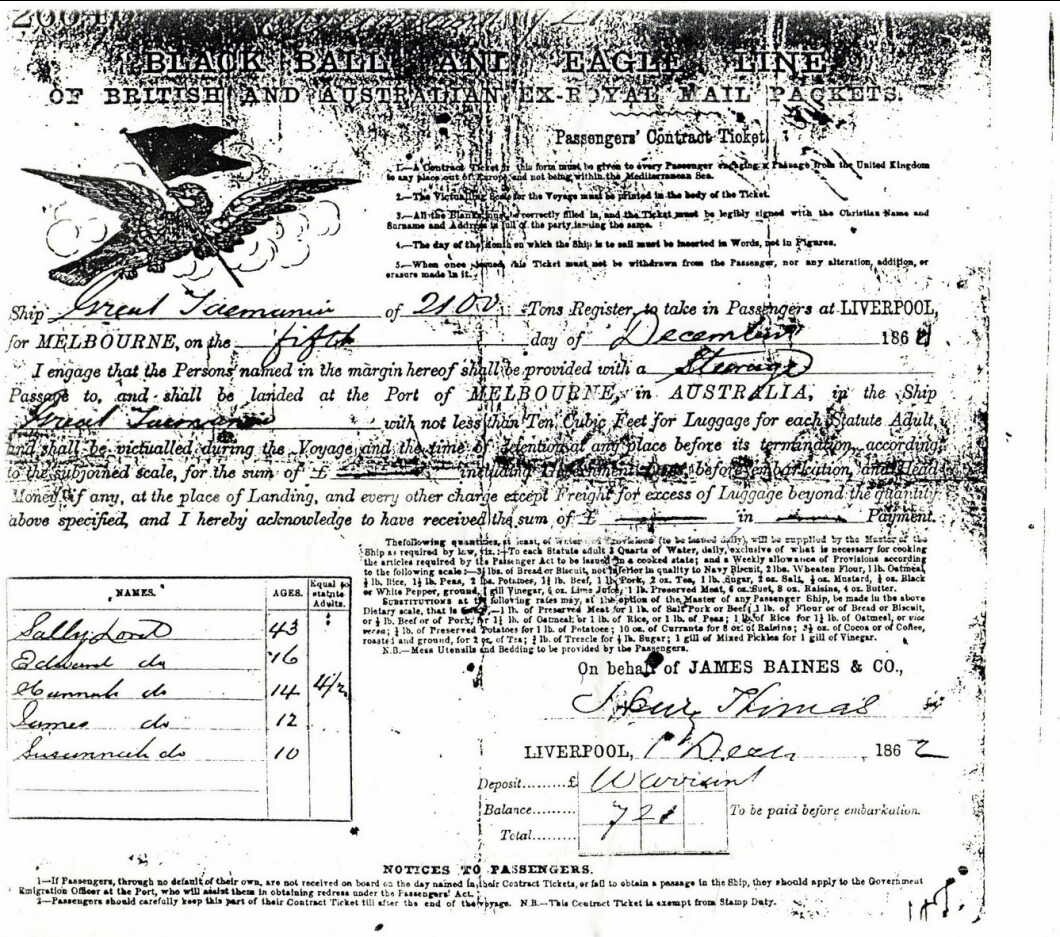 BLACK BALL AND EAGLE LINE
OF BRITISH AND AUSTRALIAN EX-ROYAL MAIL PACKETS.
Passengers' Contract Ticket.
1.—A Contract Ticket in this form must be given to every Passenger engaging a Passage from the United Kingdom
to any place out of Europe, and not being within the Mediterranean Sea.
2.—The Victualling Scale for the Voyage must be printed in the body of the Ticket.
3.—All the Blanks must be correctly filled in, and the Ticket must be legibly signed with the Christian Name and
Surname and Address in full of the party issuing the same.
4.—The day of the Month on which the Ship is to sail must be inserted in Words, not in Figures.
5.—When once issued, this Ticket must not be withdrawn from the Passenger, nor any alteration, addition, or
erasure made in it.
Ship Great Tasmania of 2100 Tons Register, to take in Passengers at LIVERPOOL,
for MELBOURNE, on the fifth day of December 1862
I engage that the Persons named in the margin hereof shall be provided with a Steerage
Passage to, and shall be landed at the Port of MELBOURNE, in AUSTRALIA, in the Ship
Great Tasmania with not less than Ten Cubic Feet for Luggage for each Statute Adult,
and shall be victualled during the Voyage and the time of detention at any place before its termination, according
to the subjoined scale, for the sum of £ including Government Dues before embarkation, and Head
Money, if any, at the place of Landing, and every other charge except Freight for excess of Luggage beyond the quantity
above specified, and I hereby acknowledge to have received the sum of £ in Payment.
The following quantities, at least, of Water and Provisions (to be issued daily), will be supplied by the Master of the
Ship as required by law, viz.:—To each Statute adult 3 Quarts of Water, daily, exclusive of what is necessary for cooking
the articles required by the Passenger Act to be issued in a cooked state; and a Weekly allowance of Provisions according
to the following scale:—3½ lbs. of Bread or Biscuit, not inferior in quality to Navy Biscuit, 2 lbs. Wheaten Flour, 1 lb. Oatmeal,
½ lb. Rice, 1½ lb. Peas, 2 lbs. Potatoes, 1¼ lb. Beef, 1 lb. Pork, 2 oz. Tea, 1 lb. Sugar, 2 oz. Salt, ½ oz. Mustard, ¼ oz. Black
or White Pepper, ground, 1 gill Vinegar, 6 oz. Lime Juice, 1 lb. Preserved Meat, 6 oz. Suet, 8 oz. Raisins, 4 oz. Butter.
SUBSTITUTIONS at the following rates may, at the option of the Master of any Passenger Ship, be made in the above
Dietary scale, that is to say,—1 lb. of Preserved Meat for 1 lb. of Salt Pork or Beef; 1 lb. of Flour or of Bread or Biscuit,
or ½ lb. Beef or of Pork, for 1¼ lb. of Oatmeal, or 1 lb. of Rice, or 1 lb. of Peas; 1 lb. of Rice for 1¼ lb. of Oatmeal, or vice
versa; ¼ lb. of Preserved Potatoes for 1 lb. of Potatoes; 10 oz. of Currants for 8 oz. of Raisins; 3½ oz. of Cocoa or of Coffee,
roasted and ground, for 2 oz. of Tea; ¾ lb. of Treacle for ½ lb. Sugar; 1 gill of Mixed Pickles for 1 gill of Vinegar.
N.B.—Mess Utensils and Bedding to be provided by the Passengers.
NAMES. AGES. Equal to statute Adults.
Sally Lord 43
Edward do 16
Hannah do 14 4/2
James do 12
Susannah do 10
On behalf of JAMES BAINES & CO.,
Thomas
LIVERPOOL, 1st Decr 1862
Deposit.........£ Warrant
Balance......... 7 2 To be paid before embarkation.
Total......... 7
NOTICES TO PASSENGERS.
1—If Passengers, through no default of their own, are not received on board on the day named in their Contract Tickets, or fail to obtain a passage in the Ship, they should apply to the Government
Emigration Officer at the Port, who will assist them in obtaining redress under the Passengers' Act.
2—Passengers should carefully keep this part of their Contract Ticket till after the end of the voyage. N.B.—This Contract Ticket is exempt from Stamp Duty.